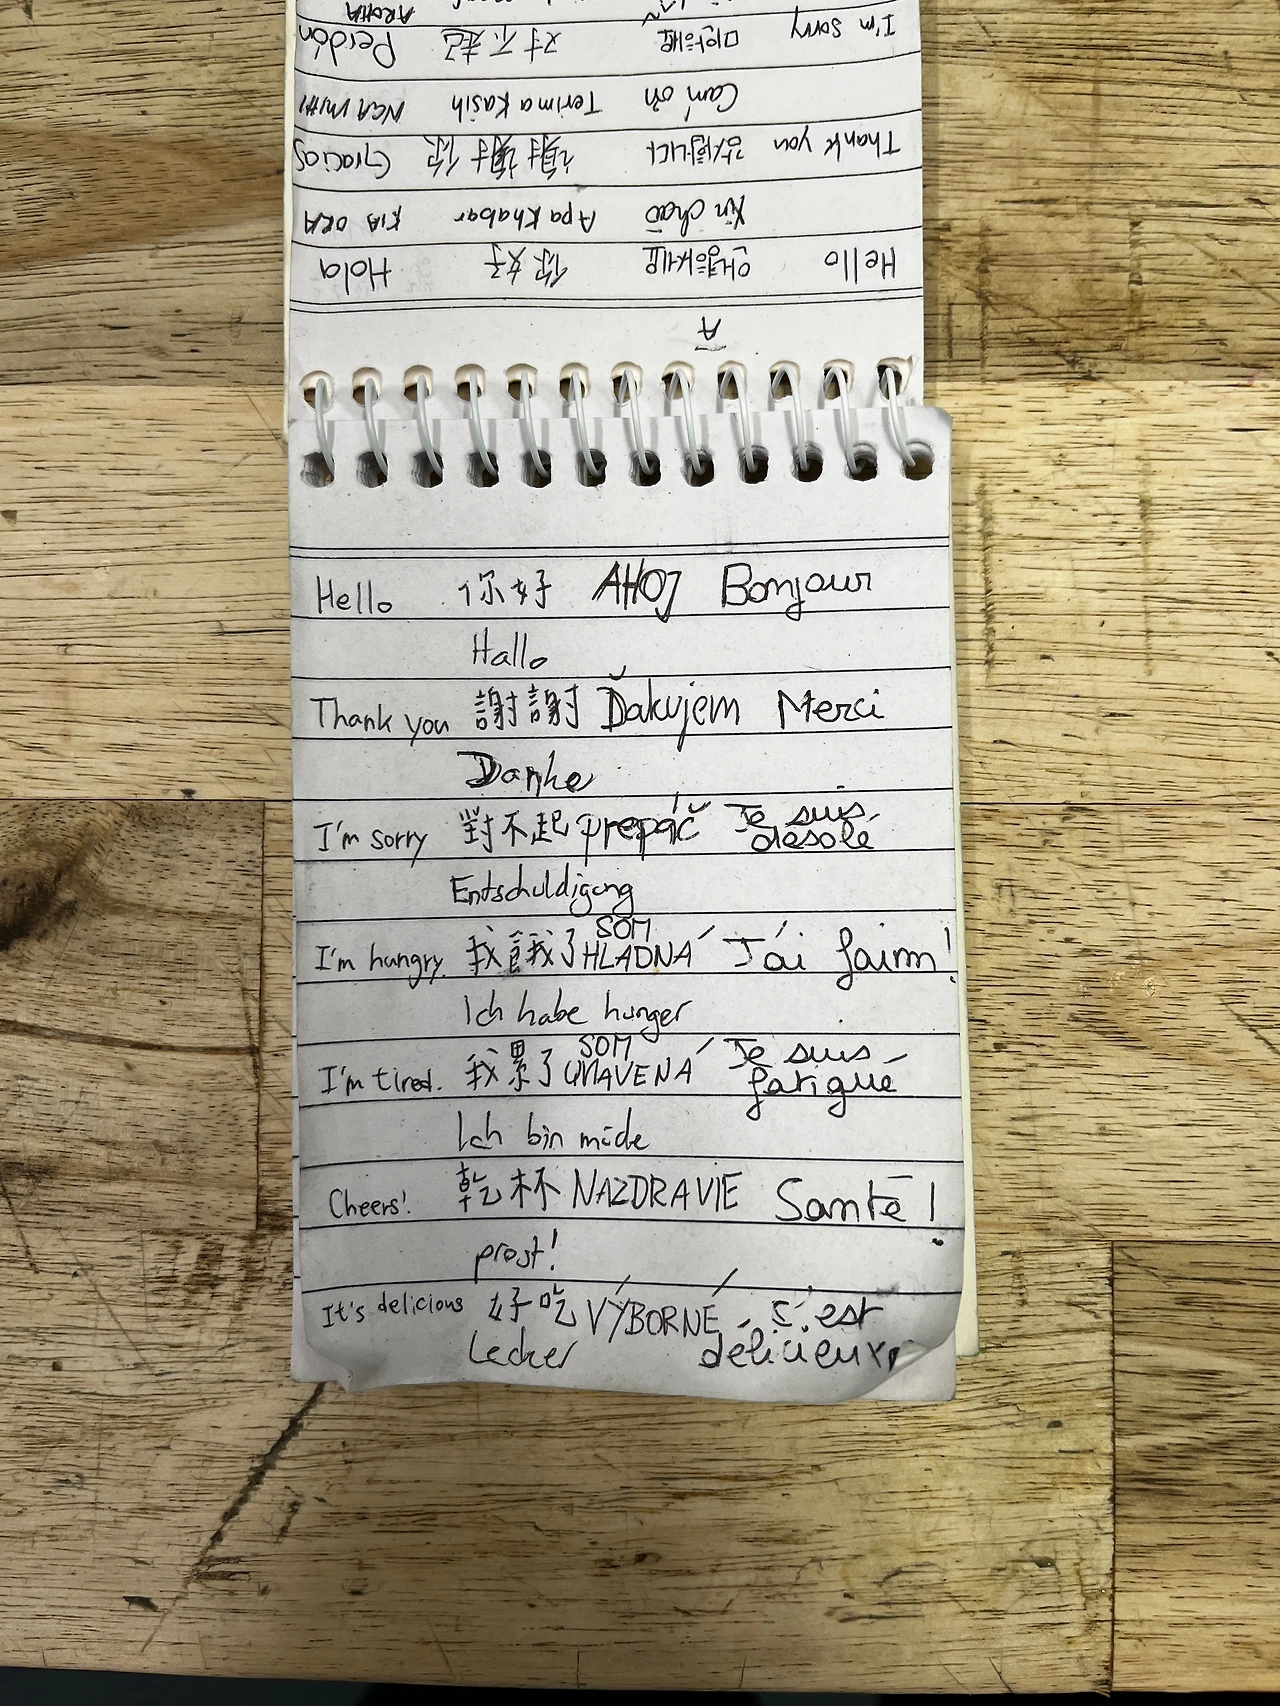 AROHA
I'm sorry 미안해요 对不起 Perdón
Cảm ơn Terima Kasih NGA MIHI
Thank you 감사합니다 謝謝你 Gracias
Xin chào Apa Khabar KIA ORA
Hello 안녕하세요 你好 Hola
A
Hello 你好 AHOJ Bonjour
Hallo
Thank you 謝謝 Ďakujem Merci
Danke
I'm sorry 對不起 prepáč Je suis désolé
Entschuldigung
I'm hungry. 我餓了 SOM HLADNÁ J'ai faim!
Ich habe hunger
I'm tired. 我累了 SOM UNAVENÁ Je suis fatigué
Ich bin müde
Cheers! 乾杯 NAZDRAVIE Santé!
prost!
It's delicious 好吃 VÝBORNÉ c'est délicieux
Lecker